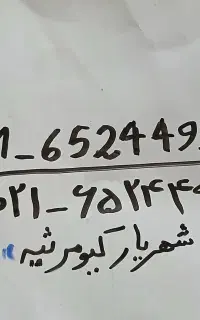 1-652449
۰۲۱-۶۵۲۴۴۹
شهریار کیومرثیه